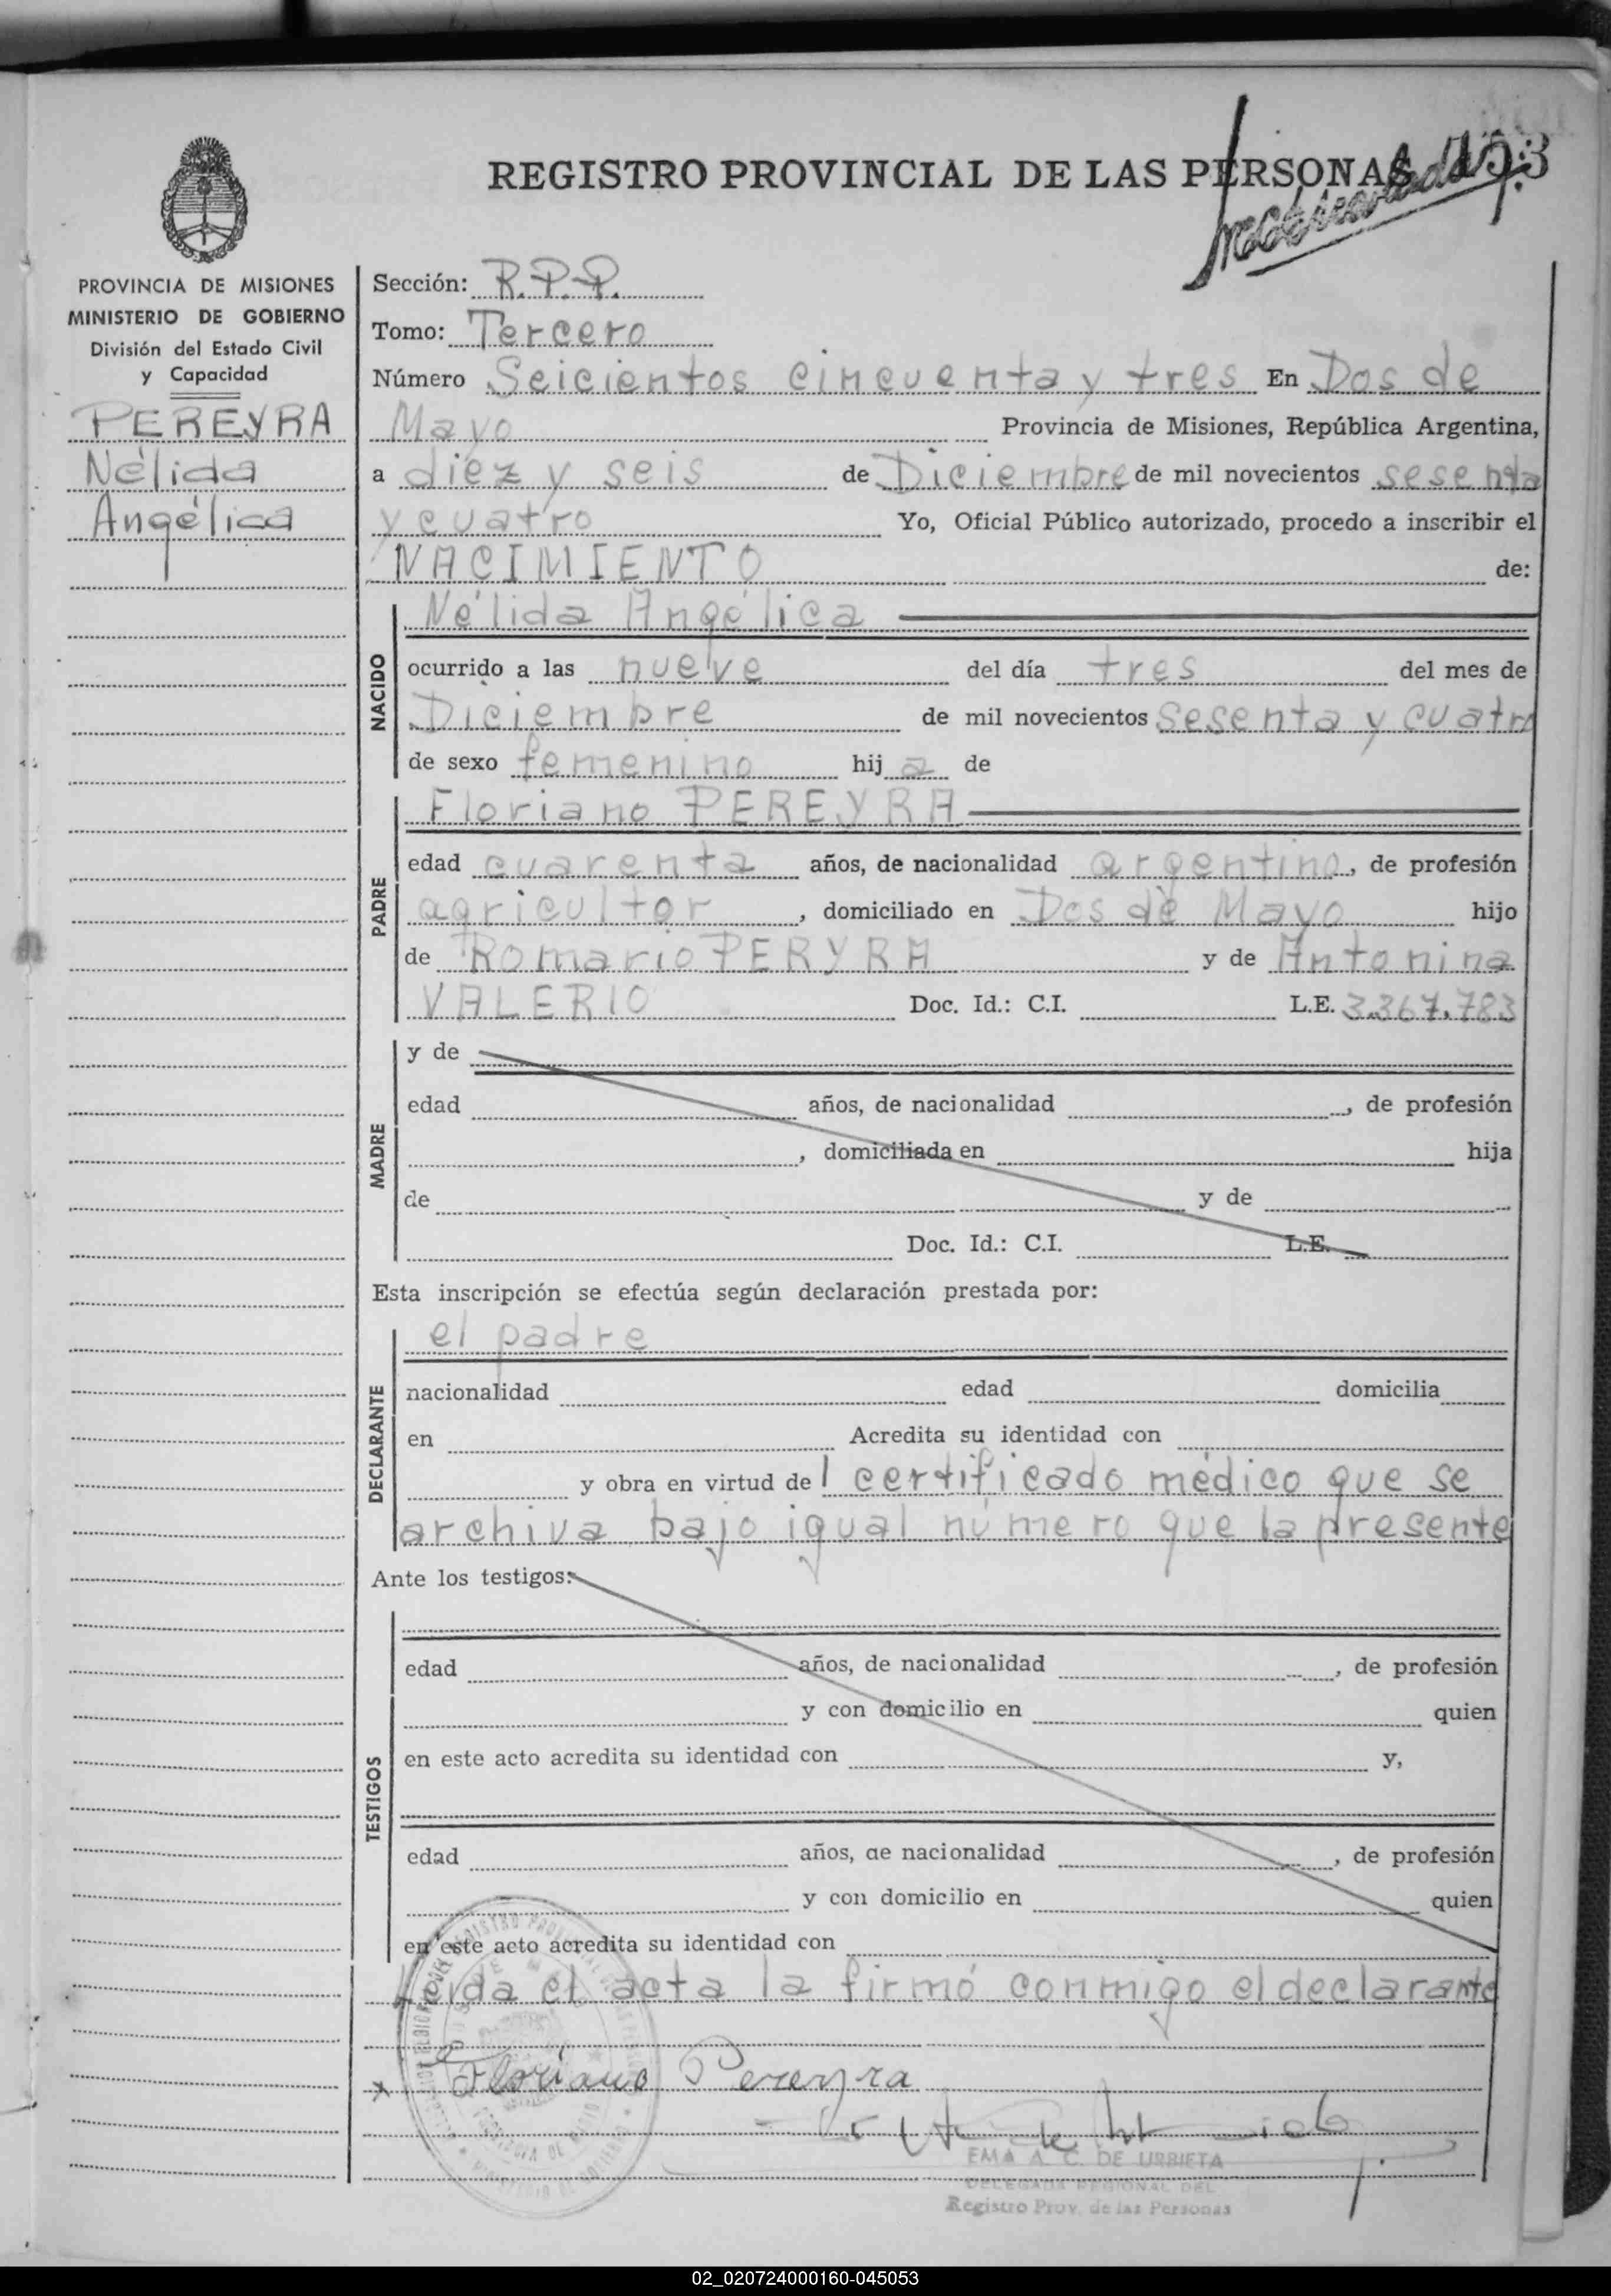 REGISTRO PROVINCIAL DE LAS PERSONAS
PROVINCIA DE MISIONES
MINISTERIO DE GOBIERNO
División del Estado Civil
y Capacidad
PEREYRA
Nélida
Angélica
Sección: R.P.P.
Tomo: Tercero
Número Seicientos cincuenta y tres En Dos de
Mayo Provincia de Misiones, República Argentina,
a diez y seis de Diciembre de mil novecientos sesenta
y cuatro Yo, Oficial Público autorizado, procedo a inscribir el
NACIMIENTO de:
NACIDO
Nélida Angélica
ocurrido a las nueve del día tres del mes de
Diciembre de mil novecientos sesenta y cuatro
de sexo femenino hija de
PADRE
Floriano PEREYRA
edad cuarenta años, de nacionalidad argentino, de profesión
agricultor, domiciliado en Dos de Mayo hijo
de Romario PERYRA y de Antonina
VALERIO Doc. Id.: C.I. L.E. 3.367.783
MADRE
y de
edad años, de nacionalidad , de profesión
, domiciliada en hija
de y de
Doc. Id.: C.I. L.E.
Esta inscripción se efectúa según declaración prestada por:
DECLARANTE
el padre
nacionalidad edad domicilia
en Acredita su identidad con
y obra en virtud del certificado médico que se
archiva bajo igual número que la presente
Ante los testigos:
TESTIGOS
edad años, de nacionalidad , de profesión
y con domicilio en quien
en este acto acredita su identidad con y,
edad años, de nacionalidad , de profesión
y con domicilio en quien
en este acto acredita su identidad con
Leida el acta la firmó conmigo el declarante
Floriano Pereyra
EMA A. C. DE URBIETA
DELEGADA REGIONAL DEL
Registro Prov. de las Personas
02_020724000160-045053